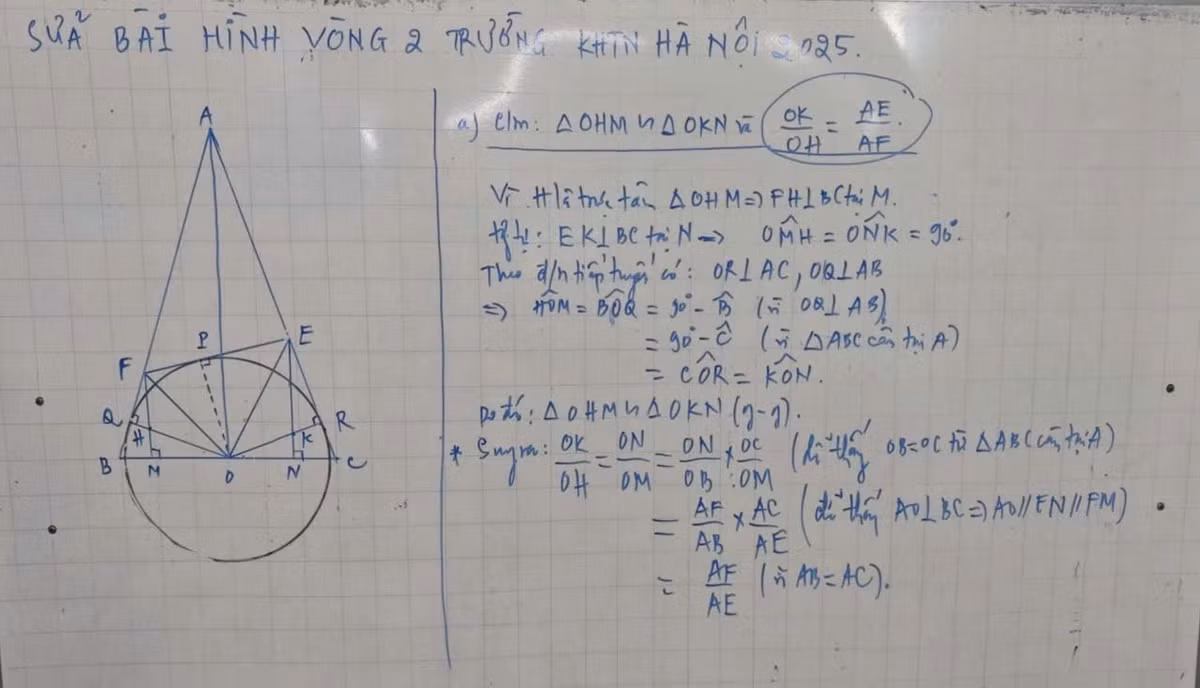 SỬA BÀI HÌNH VÒNG 2 TRƯỜNG KHTN HÀ NỘI 2025.
a) C/m: △OHM ∽ △OKN và OK/OH = AE/AF.
Vì H là trực tâm △OHM => FH⊥BC tại M.
tự: EK⊥BC tại N => OM̂H = ON̂K = 90°.
Theo đ/n tiếp tuyến có: OR⊥AC, OQ⊥AB
=> HÔM = BÔQ = 90° - B̂ (vì OQ⊥AB)
= 90° - Ĉ (vì △ABC cân tại A)
= CÔR = KÔN.
Do đó: △OHM ∽ △OKN (g-g).
* Suy ra: OK/OH = ON/OM = ON/OB × OC/OM (dễ thấy OB=OC từ △ABC cân tại A)
= AF/AB × AC/AE (dễ thấy AO⊥BC => AO//EN//FM)
= AF/AE (vì AB=AC).
A
P
E
F
Q
R
H
K
B
M
O
N
C